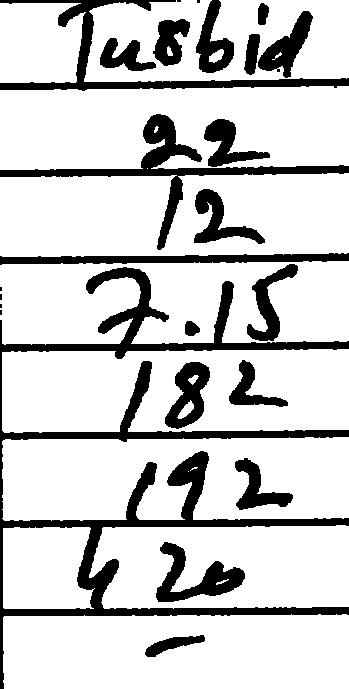 Turbid
22
12
7.15
182
192
420
–